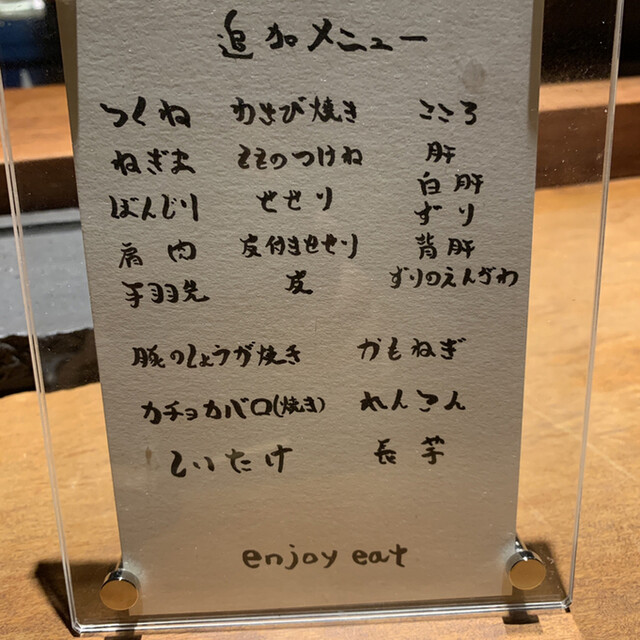 追加メニュー
つくね わさび焼き こころ
ねぎま ももつけね 肝
白肝
ぼんじり せせり ずり
肩肉 皮付きせせり 背肝
手羽先 皮 ずりのえんがわ
豚のしょうが焼き かもねぎ
カチョカバロ(焼き) れんこん
しいたけ 長芋
enjoy eat